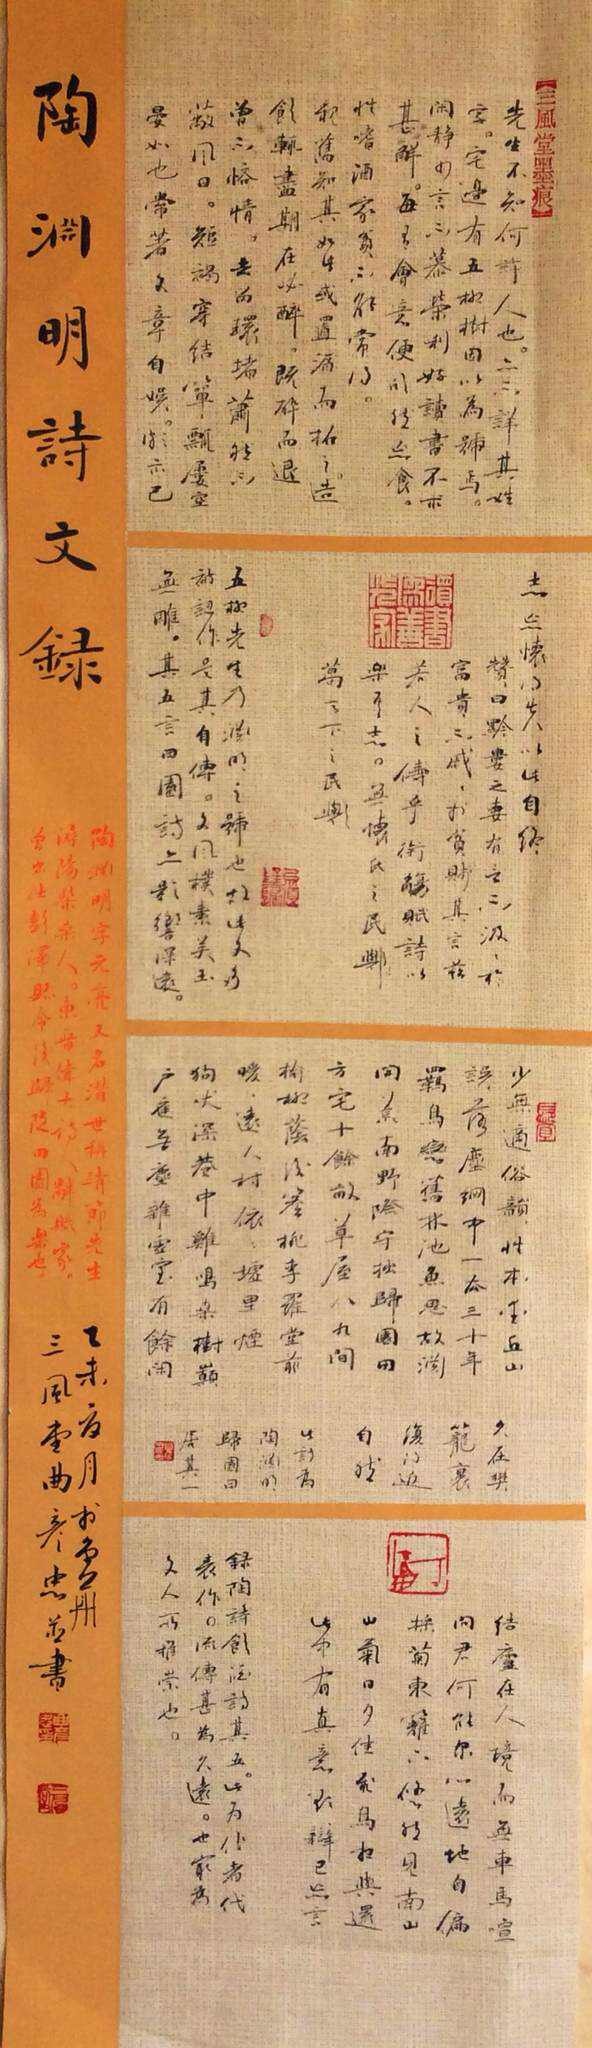 陶淵明詩文録
陶淵明字元亮又名潛世稱靖節先生
潯陽柴桑人。東晉偉大詩人辭賦家。
曾出仕彭澤縣令後歸隱田園為樂也
乙未夏月於
三風堂曲彦忠並書
【三風堂墨痕】
先生不知何許人也。亦不詳其姓
字。宅邊有五柳樹因以為號焉。
閑静少言不慕榮利好讀書不求
甚解。每有會意便欣然忘食。
性嗜酒家貧不能常得。
親舊知其如此或置酒而招之。造
飲輒盡期在必醉。既醉而退
曾不悋情。去留環堵蕭然不
蔽風日。短褐穿結簞瓢屢空
晏如也常著文章自娱。頗示己
志忘懷得失以此自終
贊曰黔婁之妻有言不汲汲於
富貴不戚戚於貧賤其言茲
若人之儔乎銜觴賦詩以
樂其志。無懷氏之民歟
葛天下之民歟
五柳先生乃淵明之號也故此文乃
被認作是其自傳。文風樸素美玉
無雕。其五言田園詩亦影響深遠。
少無適俗韻性本愛丘山
誤落塵網中一去三十年
羈鳥戀舊林池魚思故淵
開荒南野際守拙歸園田
方宅十餘畝草屋八九間
榆柳蔭後簷桃李羅堂前
曖曖遠人村依依墟里煙
狗吠深巷中雞鳴桑樹巔
户庭無塵雜虚室有餘閑
久在樊
籠裏
復得返
自然
此詩為
陶淵明
歸園田
居其一
結廬在人境而無車馬喧
問君何能尔心遠地自偏
採菊東籬下悠然見南山
山氣日夕佳飛鳥相與還
此中有真意欲辯已忘言
録陶詩飲酒詩其五。此为作者代
表作。流傳甚為久遠。也最為
文人所推崇也。